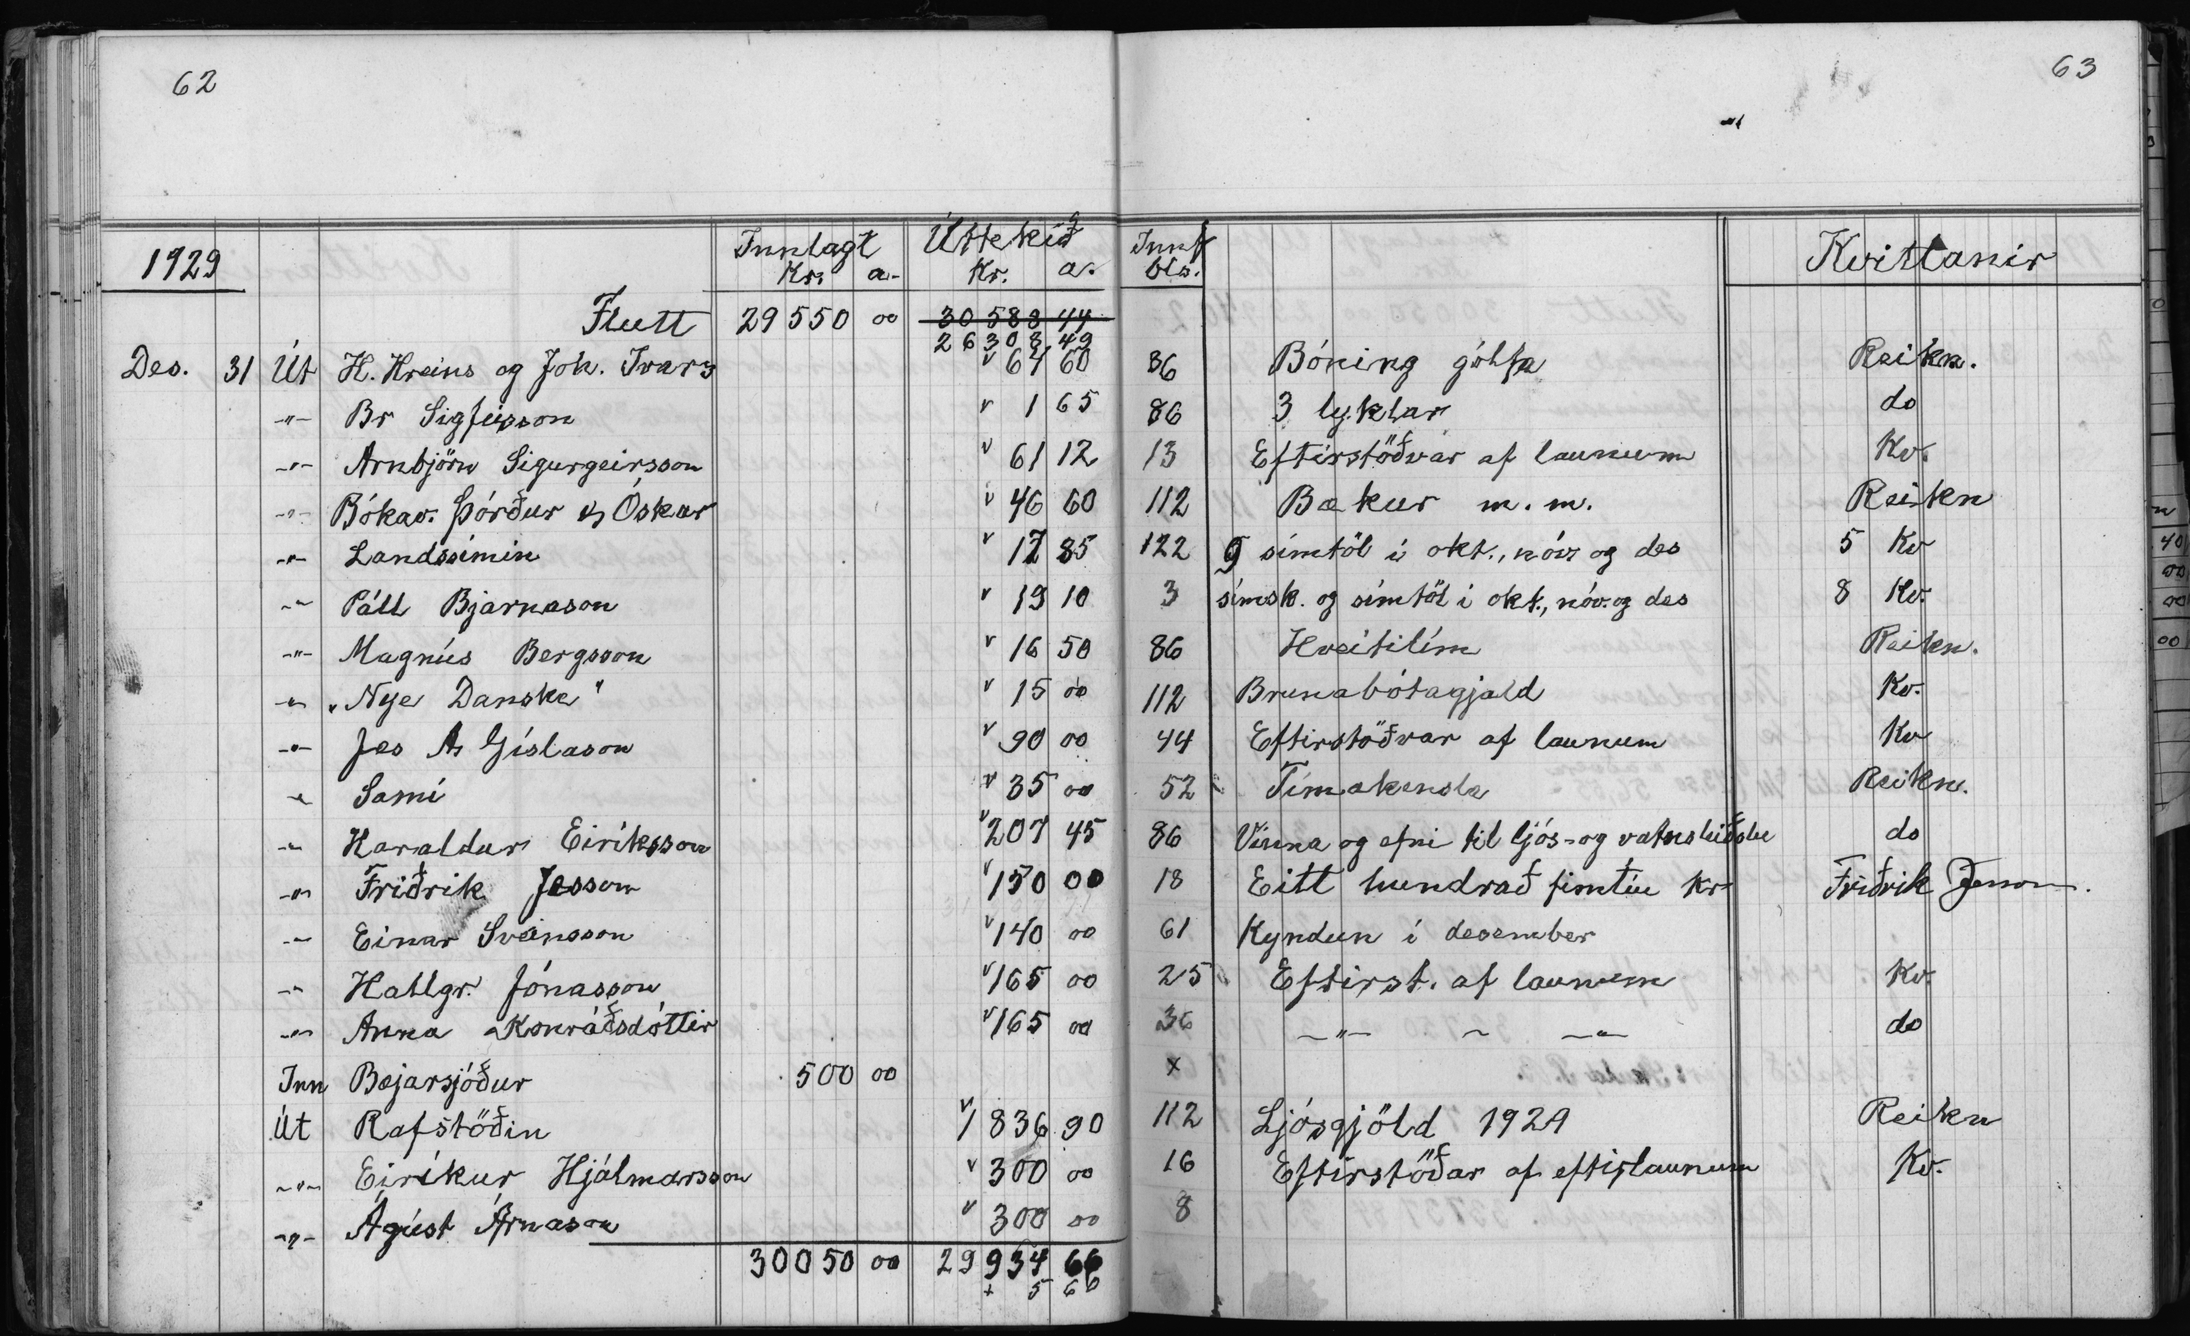 62
63
1929 Innlagt Úttekið Innf Kvittanir
Kr. a. Kr. a. bls.
Flutt 29550 00 30583 44
26308 49
Des. 31 Út H. Hreins og Joh. Ivars 67 60 86 Bóning gólfa Reikn.
-"- Br Sigfússon 1 65 86 3 lyklar do
-"- Arnbjörn Sigurgeirsson 61 12 13 Eftirstöðvar af launum Kv.
-"- Bókav. Þórður & Óskar 46 60 112 Bækur m. m. Reikn
-"- Landssímin 17 85 122 9 símtöl í okt., nóv og des 5 Kv
-"- Páll Bjarnason 19 10 3 símsk. og símtöl í okt., nóv. og des 8 Kv.
-"- Magnús Bergsson 16 50 86 Hveitilím Reikn.
-"- "Nye Danske" 15 00 112 Brunabótagjald Kv.
-"- Jes A Gíslason 90 00 44 Eftirstöðvar af launum Kv
-"- Sami 35 00 52 Tímakensla Reikn.
-"- Haraldur Eiríksson 207 45 86 Vinna og efni til ljós- og vatnsleiðslu do
-"- Friðrik Jesson 150 00 18 Eitt hundrað fimtíu Kr Friðrik Jesson.
-"- Einar Sveinsson 140 00 61 Kyndun í desember
-"- Hallgr. Jónasson 165 00 25 Eftirst. af launum Kv.
-"- Anna Konráðsdóttir 165 00 36 -"- - -"- do
Inn Bæjarsjóður 500 00 x
Út Rafstöðin 1836 90 112 Ljósgjöld 1929 Reikn
-"- Eiríkur Hjálmarsson 300 00 16 Eftirstöðar af eftirlaunum Kv.
-"- Ágúst Árnason 300 00 8
30050 00 29934 66
+ 5 66